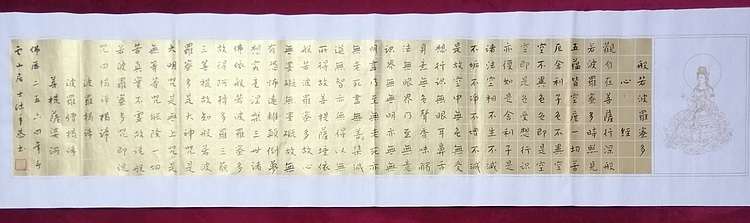 般若波羅蜜多
心經
觀自在菩薩行深般
若波羅蜜多時照見
五蘊皆空度一切苦
厄舍利子色不異空
空不異色色即是空
空即是色受想行識
亦復如是舍利子是
諸法空相不生不滅
不垢不淨不增不減
是故空中無色無受
想行識無眼耳鼻舌
身意無色聲香味觸
法無眼界乃至無意
識界無無明亦無無
明盡乃至無老死亦
無老死盡無苦集滅
道無智亦無得以無
所得故菩提薩埵依
般若波羅蜜多故心
無罣礙無罣礙故無
有恐怖遠離顛倒夢
想究竟涅槃三世諸
佛依般若波羅蜜多
故得阿耨多羅三藐
三菩提故知般若波
羅蜜多是大神咒是
大明咒是無上咒是
無等等咒能除一切
苦真實不虛故說般
若波羅蜜多咒即說
咒曰揭諦揭諦
波羅揭諦
波羅僧揭諦
菩提薩婆訶
佛曆二五六四年
山居士沐手恭書